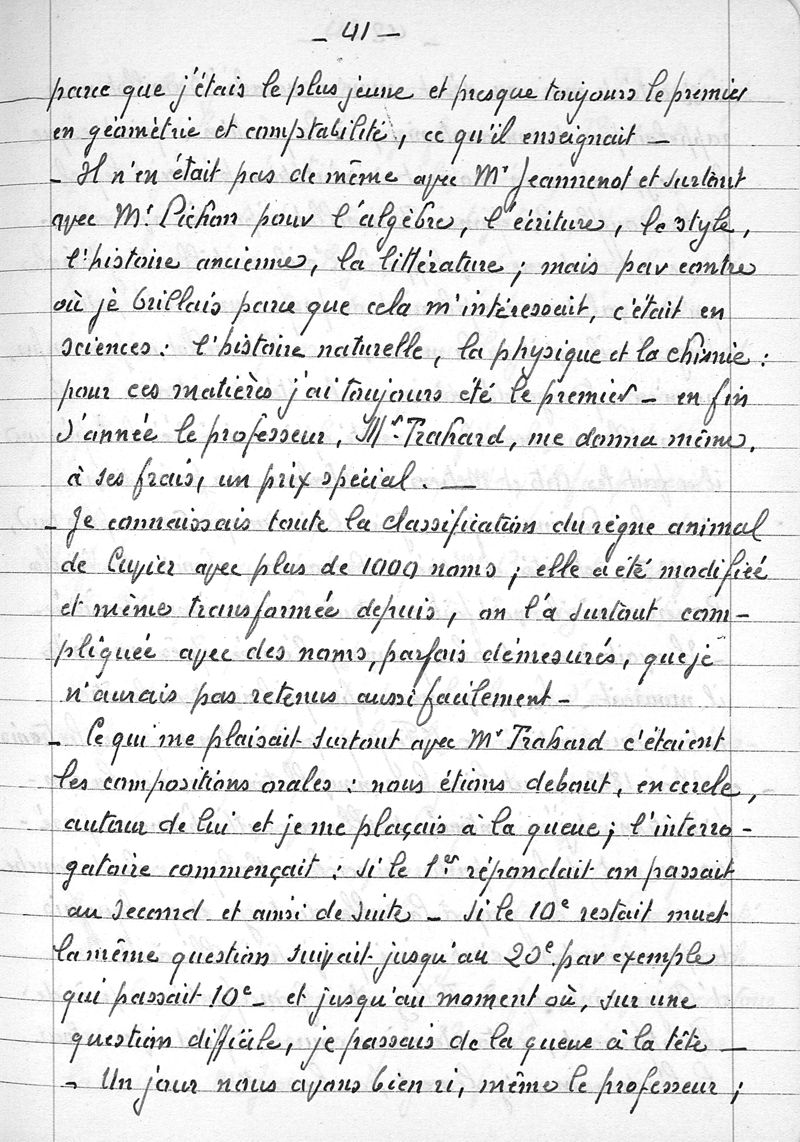 - 41 -
parce que j'étais le plus jeune et presque toujours le premier
en géométrie et comptabilité, ce qu'il enseignait -
- Il n'en était pas de même avec Mr Jeannenot et surtout
avec Mr Pichon pour l'algèbre, l'écriture, le style,
l'histoire ancienne, la littérature ; mais par contre
où je brillais parce que cela m'intéressait, c'était en
sciences : l'histoire naturelle, la physique et la chimie :
pour ces matières j'ai toujours été le premier - en fin
d'année le professeur, Mr Trahard, me donna même,
à ses frais, un prix spécial. -
- Je connaissais toute la classification du règne animal
de Cuvier avec plus de 1000 noms ; elle a été modifiée
et même transformée depuis, on l'a surtout com-
pliquée avec des noms, parfois démesurés, que je
n'aurais pas retenus aussi facilement -
- Ce qui me plaisait surtout avec Mr Trahard c'étaient
les compositions orales : nous étions debout, en cercle,
autour de lui et je me plaçais à la queue ; l'interro-
gatoire commençait : si le 1er répondait on passait
au second et ainsi de suite - si le 10e restait muet
la même question suivait jusqu'au 20e par exemple
qui passait 10e - et jusqu'au moment où, sur une
question difficile, je passais de la queue à la tête -
- Un jour nous avons bien ri, même le professeur ;